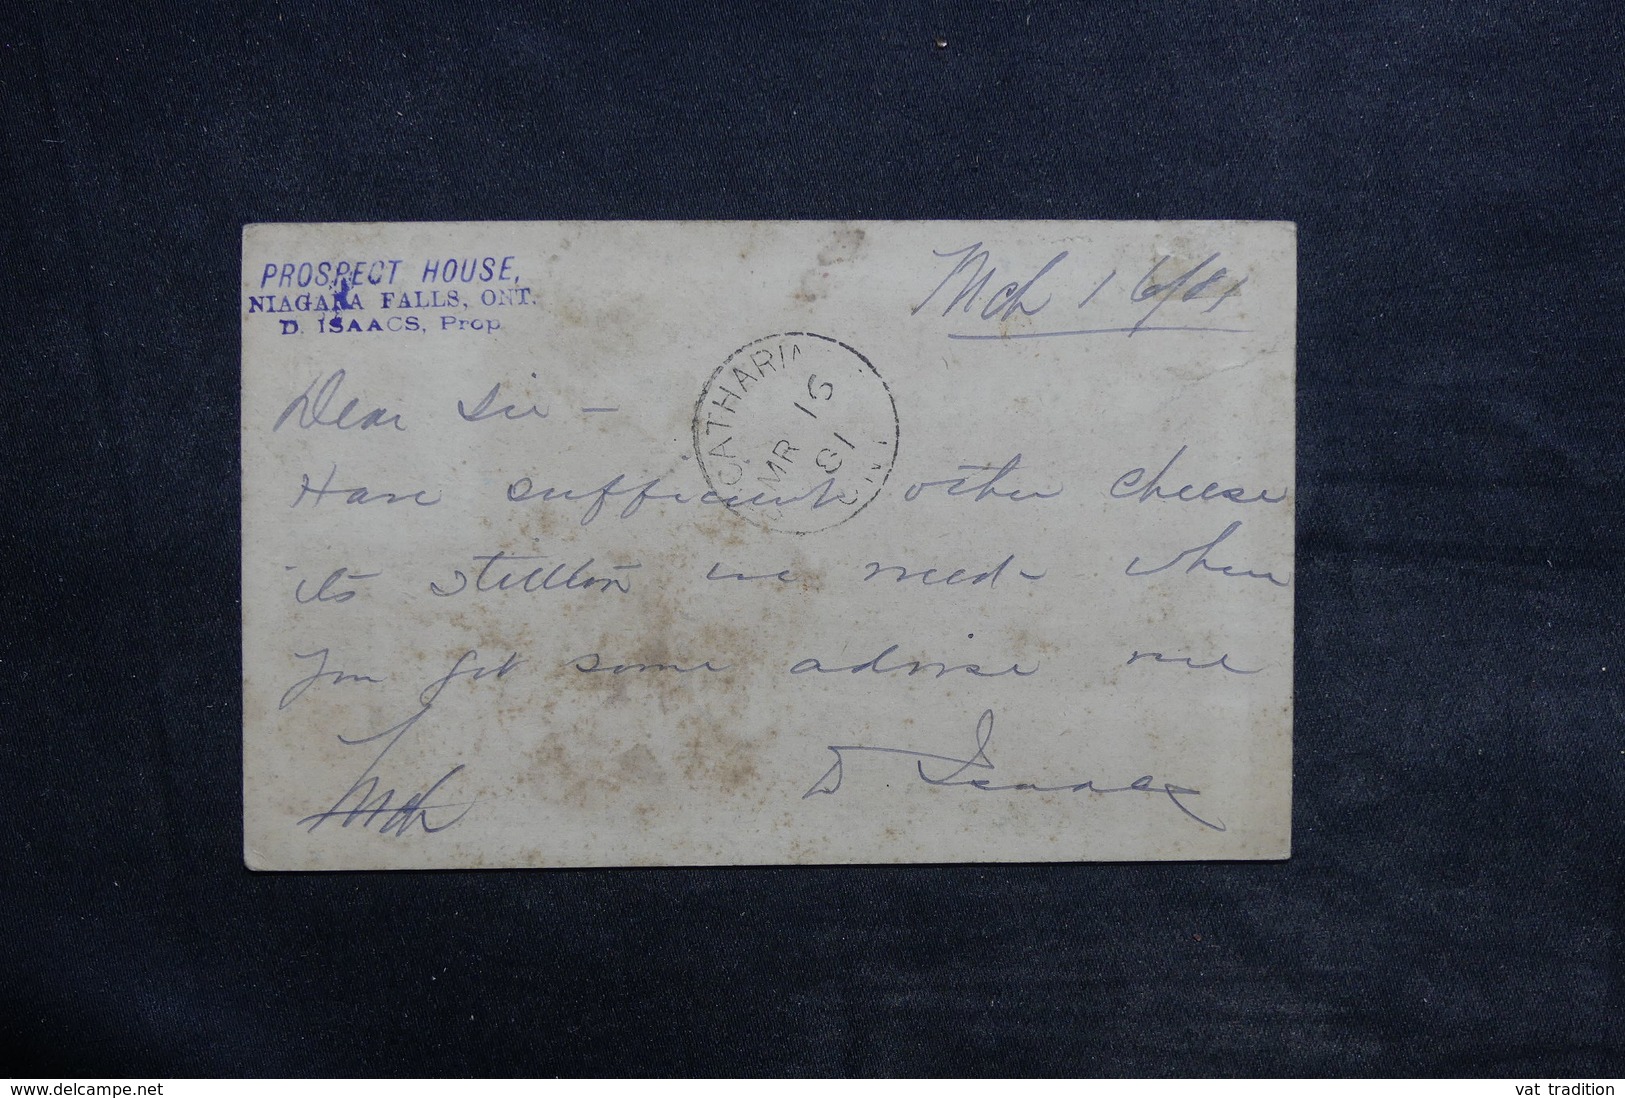 PROSPECT HOUSE,
NIAGARA FALLS, ONT.
D. ISAACS, Prop
Mch 16/81
CATHARIN
MR 16
81
ONT
Dear Sir –
Have sufficient other cheese
its stillton we need – when
you get some advise me
D Isaacs
Mch
www.delcampe.net
vat tradition